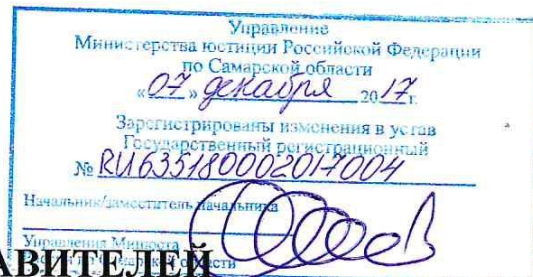 Управление
Министерства юстиции Российской Федерации
по Самарской области
«07» декабря 2017г.
Зарегистрированы изменения в устав
Государственный регистрационный
№ RU635180002017004
Начальник/заместитель начальника
Управления Минюста
области
АВИТЕЛЕЙ